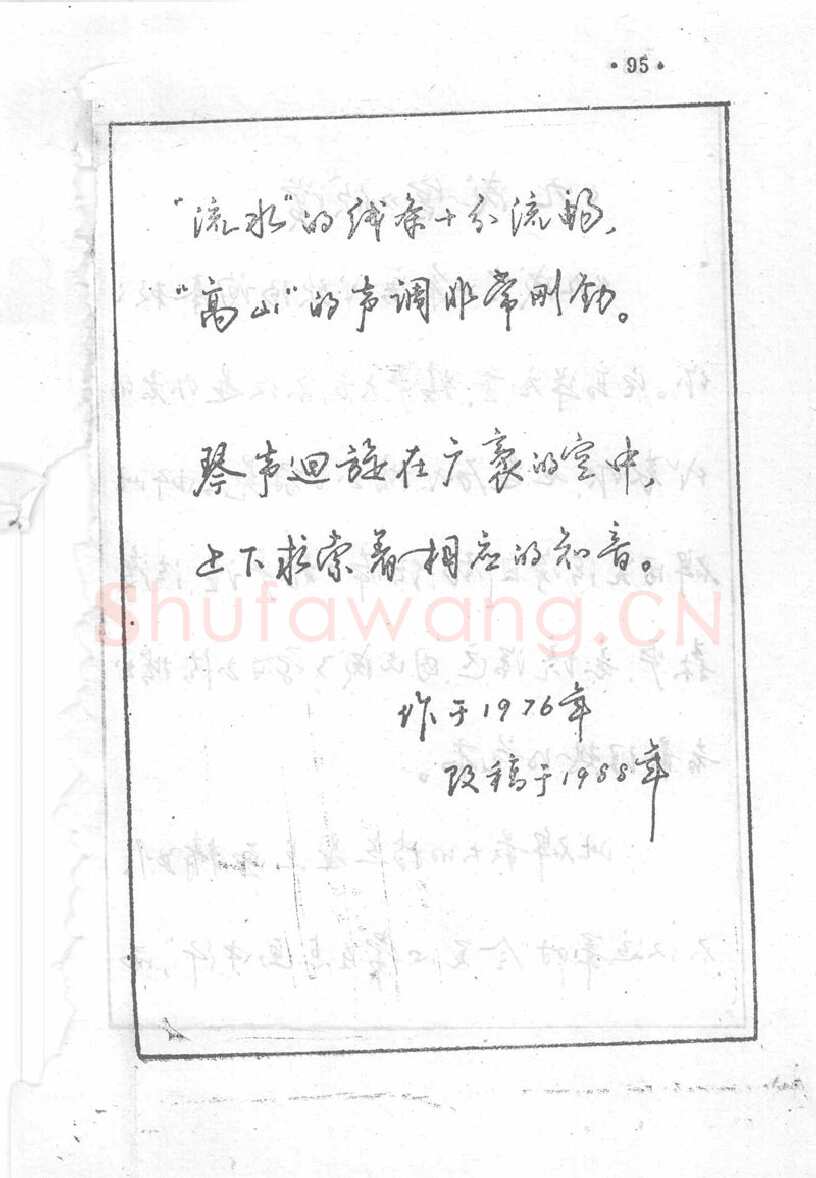 ·95·
"流水"的线条十分流畅,
"高山"的声调非常刚劲。
琴声迴旋在广袤的空中,
上下求索着相应的知音。
Shufawang.CN
作于1976年
改稿于1988年